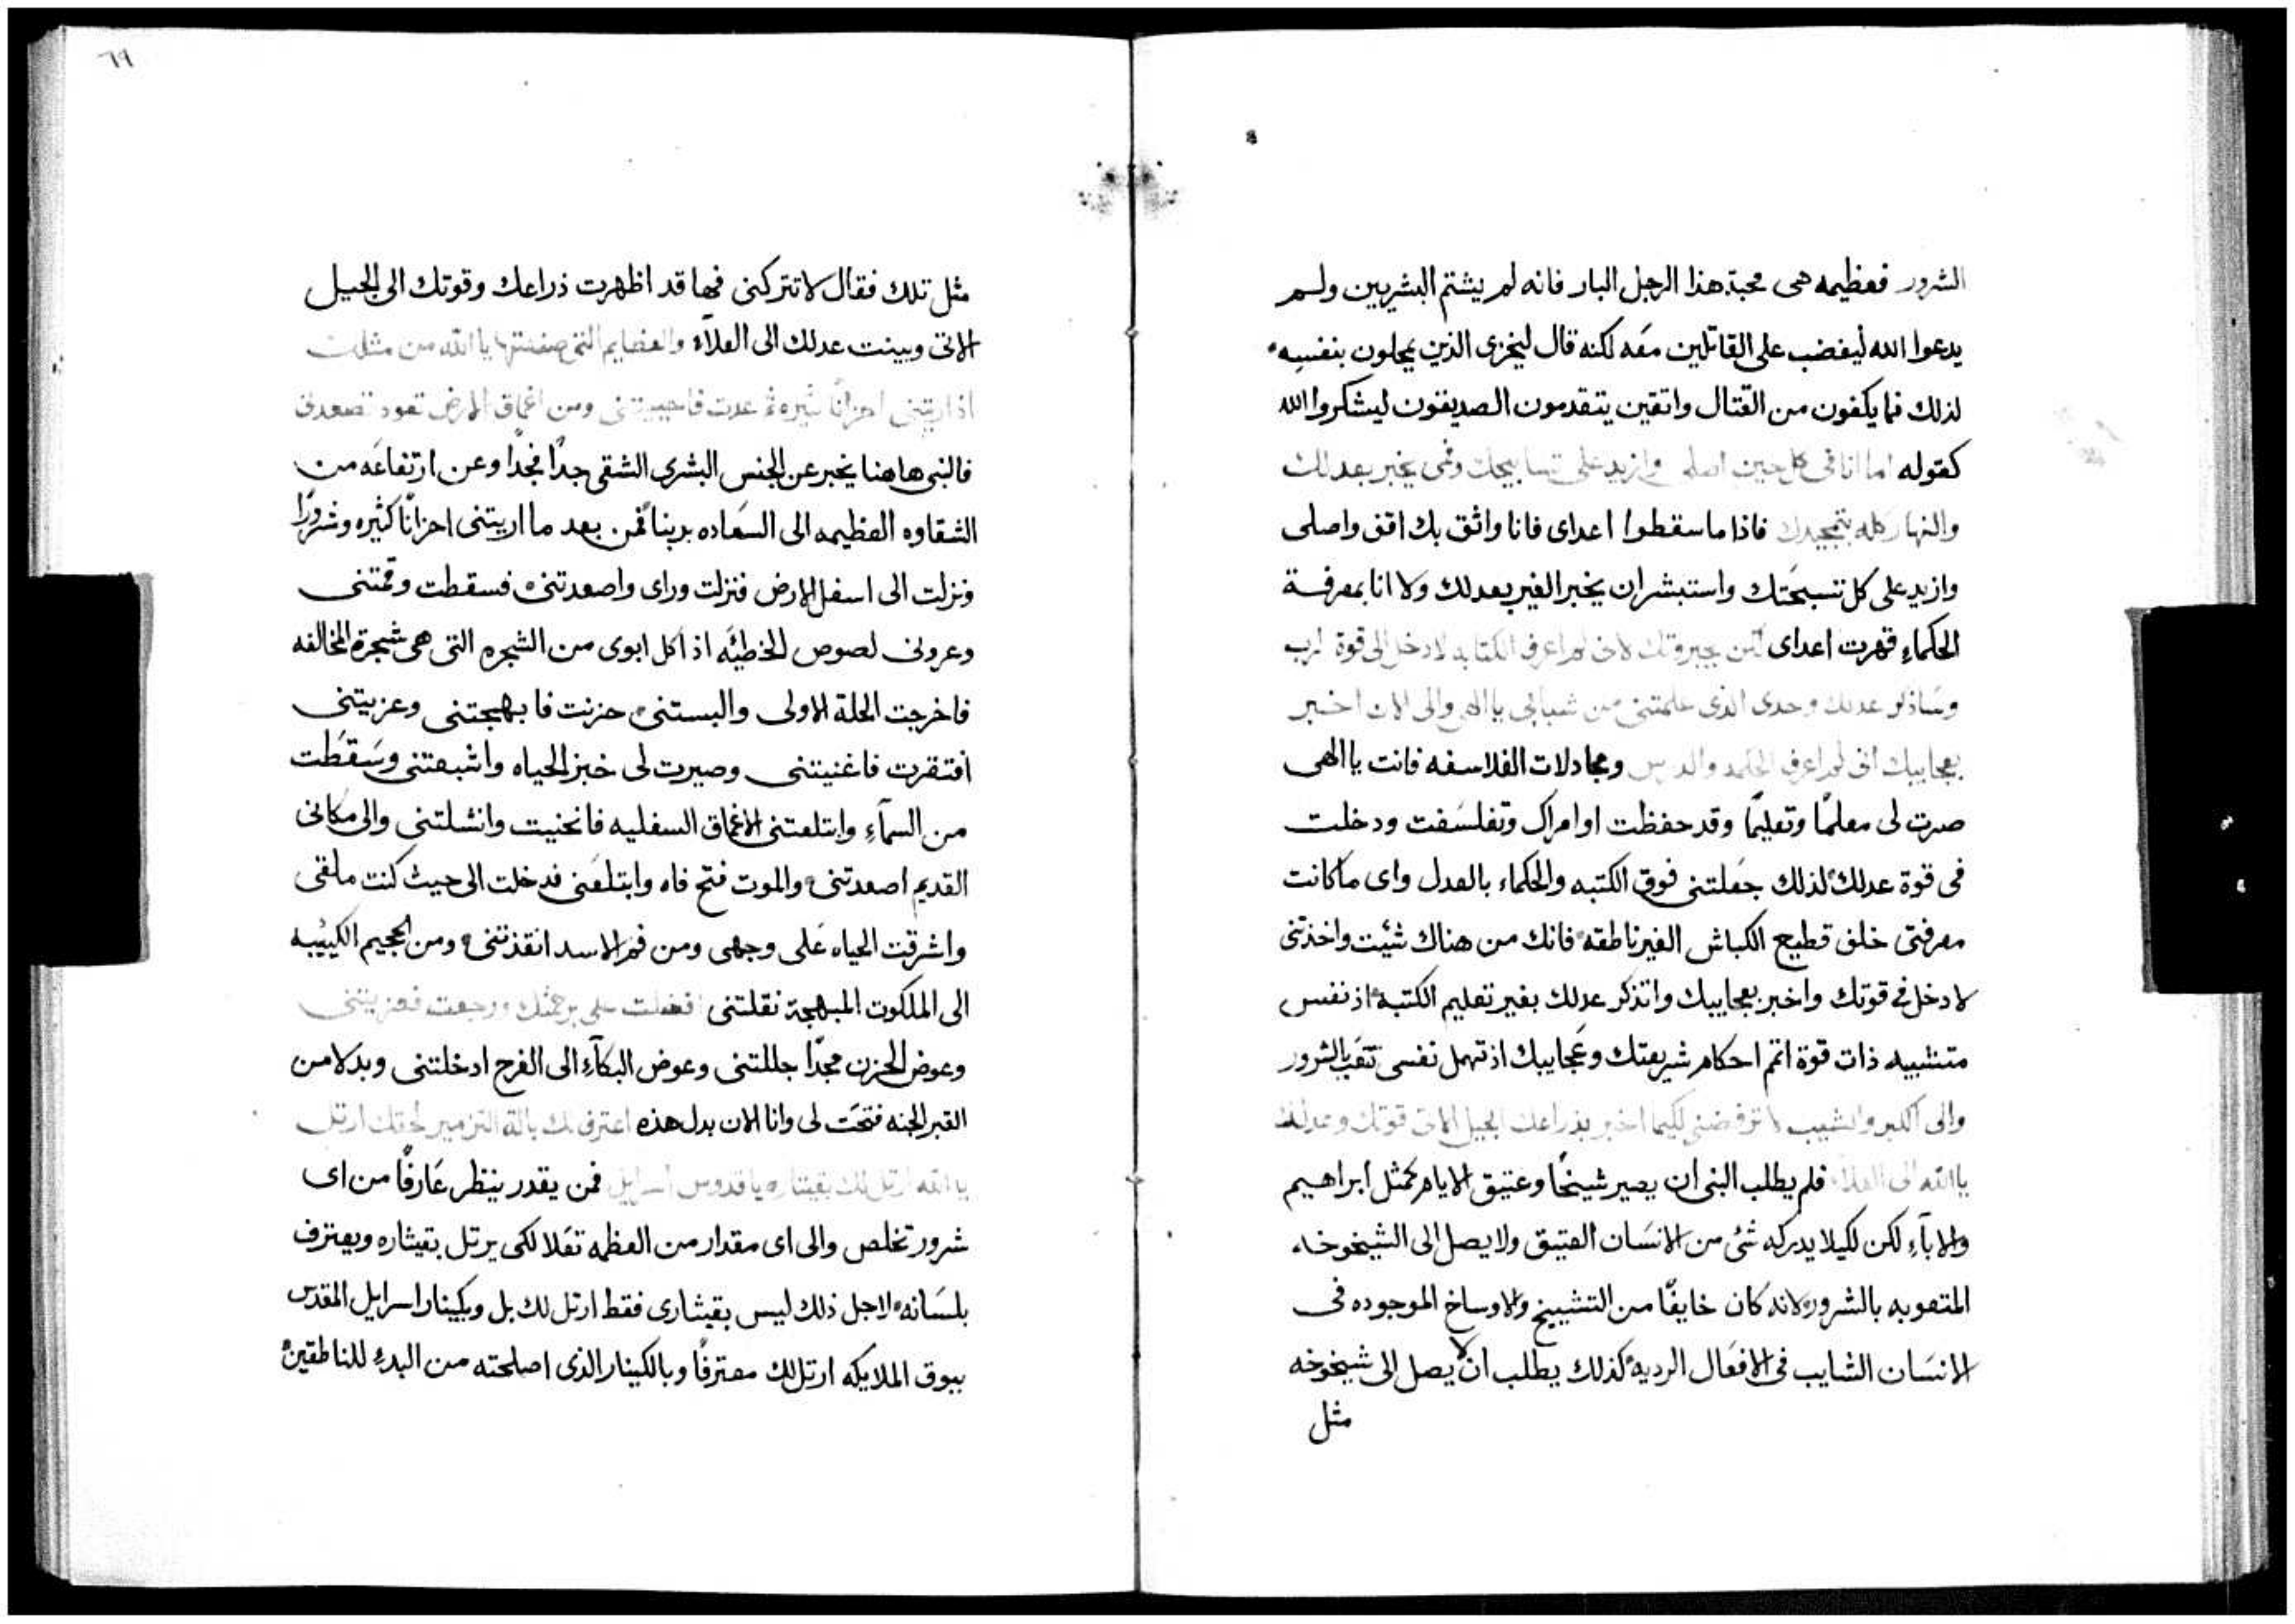 الشرور فعظيمه هى محبة هذا الرجل البار فانه لم يشتم البشريين ولم
يدعوا الله ليغضب على القاتلين معه لكنه قال ليخزى الذين يمحلون بنفسه
لذلك فما يكفون من القتال واتقين يتقدمون الصديقون ليشكروا الله
كقوله اما انا فى كل حين اصلى وازيد على تسابيحك وفمى يخبر بعدلك
والنهار كله بتمجيدك فاذا ما سقطوا اعداى فانا واثق بك اقف واصلى
وازيد على كل تسبحتك واستبشر ان يخبر الغير بعدلك ولا انا بمعرفة
الحكماء قهرت اعداى لكن بجبروتك لانى لم اعرف الكتابه لادخل الى قوة الرب
وساذكر عدلك وحدى الذى علمتنى من شبابى يا الهى والى الان اخبر
بعجايبك انى لم اعرف الحكمه والدرس ومجادلات الفلاسفه فانت يا الهى
صرت لى معلمًا وتعليمًا وقد حفظت اوامرك وتفلسفت ودخلت
فى قوة عدلك لذلك جعلتنى فوق الكتبه والحكماء بالعدل واى ما كانت
معرفتى خلف قطيع الكباش الغير ناطقه فانك من هناك شئت واخذتنى
لادخل فى قوتك واخبر بعجايبك واتذكر عدلك بغير تعليم الكتبه اذ نفس
متشبيه ذات قوة اتم احكام شريعتك وعجايبك اذ تهمل نفسى تتعب بالشرور
والى الكبر والشيب لا ترفضنى لكيما اخبر بذراعك الجيل الاتى قوتك وعدلك
يا الله الى العلاء فلم يطلب النبى ان يصير شيخًا وعتيق الايام كمثل ابراهيم
والاباء لكن لكيلا يدركه شئ من الانسان العتيق ولا يصل الى الشيخوخه
المتعوبه بالشرور لانه كان خايفًا من التشييخ والاوساخ الموجوده فى
الانسان الشايب فى الافعال الرديه كذلك يطلب ان لا يصل الى شيخوخه
مثل
٦٩
مثل تلك فقال لا تتركنى فيها قد اظهرت ذراعك وقوتك الى الجيل
الاتى وبينت عدلك الى العلاء والعظايم التى صنعتها يا الله من مثلك
اذ اريتنى احزانًا كثيره ثم عدت فاحييتنى ومن اعماق الارض تعود تصعدنى
فالنبى هاهنا يخبر عن الجنس البشرى الشقى جدًا مجدًا وعن ارتفاعه من
الشقاوه العظيمه الى السعاده بربنا فمن بعد ما اريتنى احزانًا كثيره وشرورًا
ونزلت الى اسفل الارض فنزلت وراى واصعدتنى فسقطت وقمتنى
وعرونى لصوص الخطيئه اذ اكل ابوى من الشجره التى هى شجرة المخالفه
فاخرجت الحلة الاولى والبستنى حزنت فابهجتنى وعزيتنى
افتقرت فاغنيتنى وصيرت لى خبز الحياه واشبعتنى وسقطت
من السماء وابتلعتنى الاعماق السفليه فانحنيت وانشلتنى والى مكانى
القديم اصعدتنى والموت فتح فاه وابتلعنى فدخلت الى حيث كنت ملقى
واشرقت الحياه على وجهى ومن فم الاسد انقذتنى ومن الجحيم الكييبه
الى الملكوت المبهجة نقلتنى افضلت على برحمتك ورجعت فعزيتنى
وعوض الحزن مجدًا جللتنى وعوض البكاء الى الفرح ادخلتنى وبدلا من
القبر الجنه فتحت لى وانا الان بدل هذه اعترف لك بالة التزمير لحقك ارتل
يا الله ارتل لك بقيثاره يا قدوس اسرايل فمن يقدر ينظر عارفًا من اى
شرور تخلص والى اى مقدار من العظمه تعلا لكى يرتل بقيثاره ويعترف
بلسانه لاجل ذلك ليس بقيثارى فقط ارتل لك بل وبكينار اسرايل المقدس
ببوق الملايكه ارتل لك معترفًا وبالكينار الذى اصلحته من البدء للناطقين